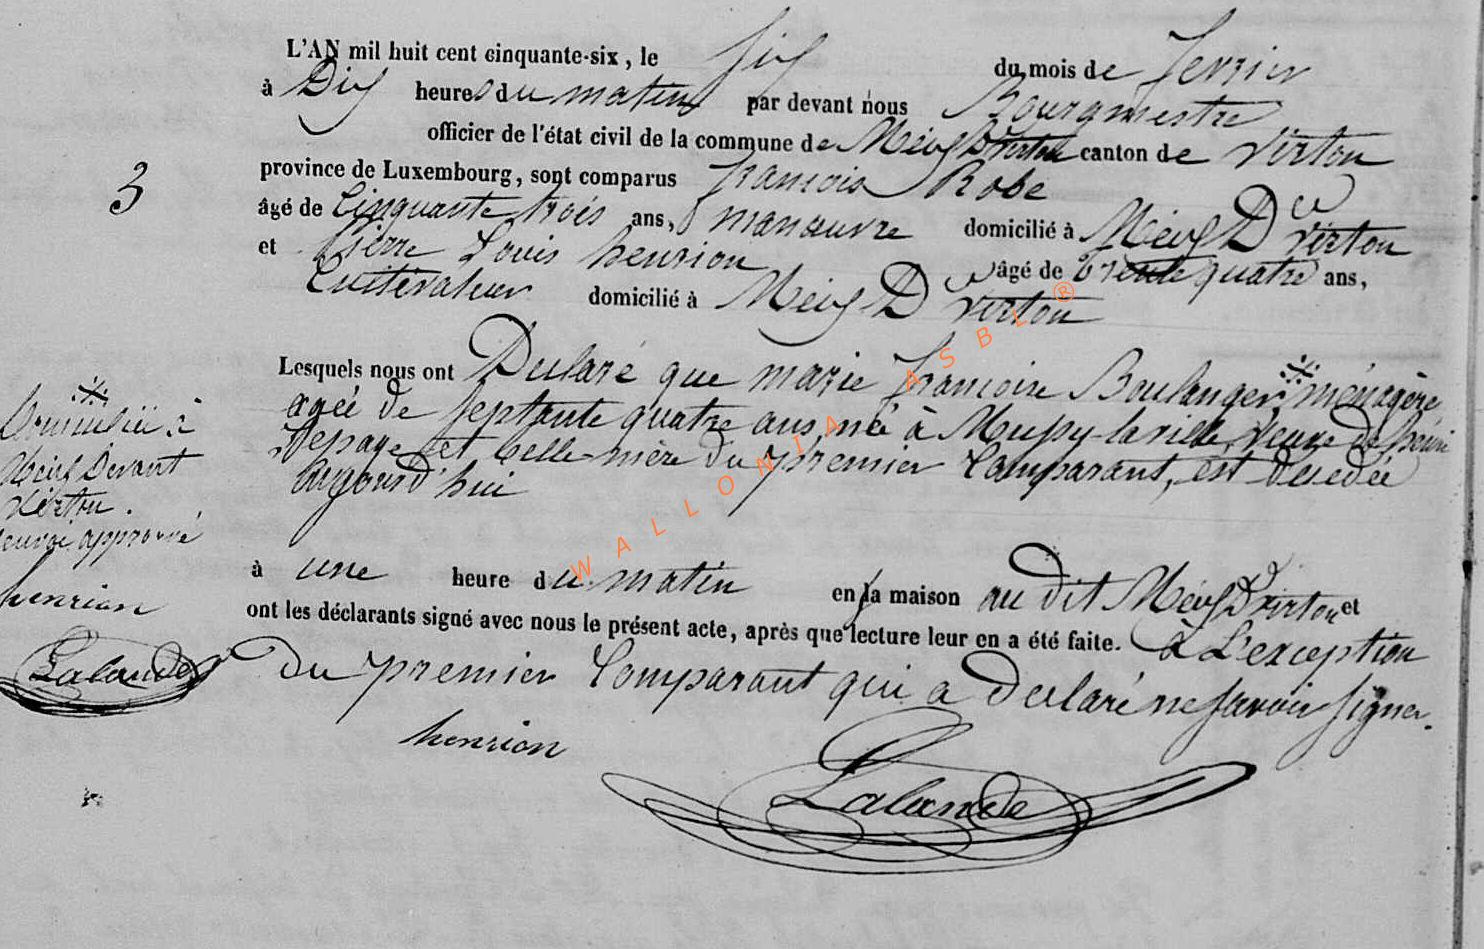 L'AN mil huit cent cinquante-six, le six du mois de fevrier
à Dix heures du matin par devant nous Bourgmestre
officier de l'état civil de la commune de Meix Dt Virton canton de Virton
province de Luxembourg, sont comparus françois Robe
3
âgé de Cinquante trois ans, manœuvre domicilié à Meix D Virton
et Pierre Louis henrion âgé de trente quatre ans,
Cultivateur domicilié à Meix D Virton
Lesquels nous ont Declaré que marie françoise Boulanger ※ ménagère
agée de septante quatre ans née à Mussy-la-ville, veuve de henri
Lepage et belle-mère du premier Comparant, est decedée
aujourd'hui
※
Domicilié à
Meix Devant
Virton.
renvoi approuvé
henrion
Lalande
à une heure du matin en la maison au dit Meix D virton et
ont les déclarants signé avec nous le présent acte, après que lecture leur en a été faite. à L'exception
du premier Comparant qui a declaré ne savoir signer.
henrion
Lalande
WALLONIA ASBL ®